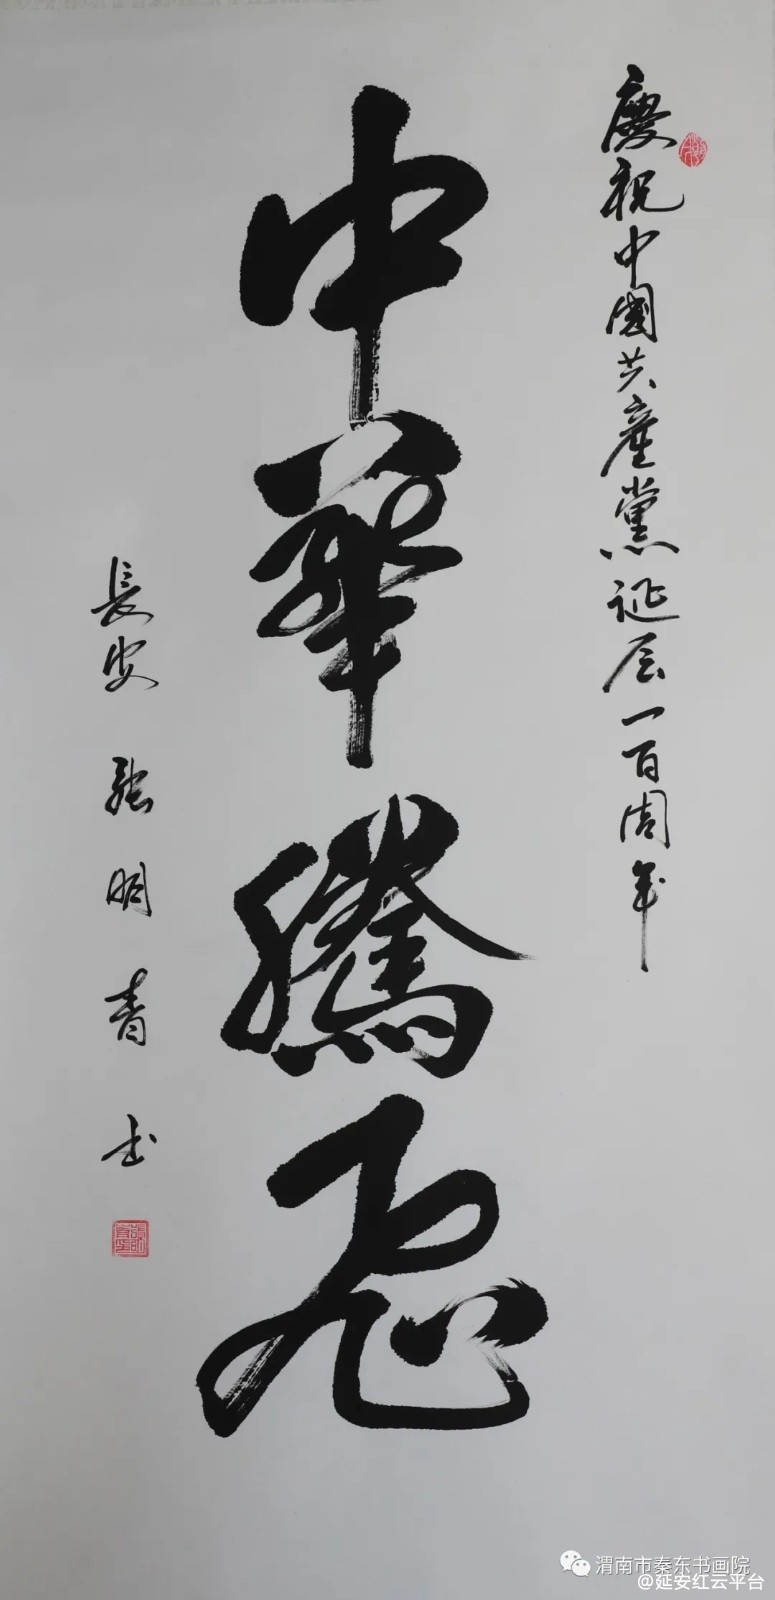 慶祝中國共產黨诞辰一百周年
中華騰飛
長安 張明青書
渭南市秦东书画院
@延安红云平台